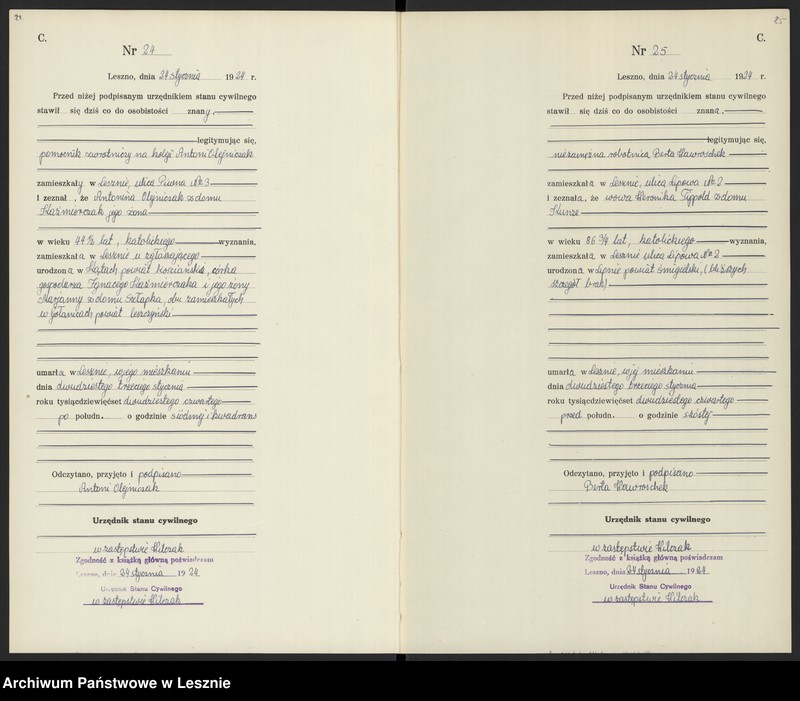 24.
C.
Nr 24
Leszno, dnia 24 stycznia 1924 r.
Przed niżej podpisanym urzędnikiem stanu cywilnego
stawił się dziś co do osobistości znany,
legitymując się,
pomocnik zwrotniczy na kolei Antoni Olejniczak
zamieszkały w Lesznie, ulica Piwna № 3
i zeznał, że Antonina Olejniczak z domu
Kaźmierczak jego żona
w wieku 44 ½ lat, katolickiego wyznania,
zamieszkała w Lesznie u zgłaszającego
urodzona w powiat Kościański, córka
gospodarza Ignacego Kaźmierczaka i jego żony
Marjanny z domu Szłapka, obu zamieszkałych
w Gołanicach powiat leszczyński
umarła w Lesznie, w jego mieszkaniu
dnia dwudziestego trzeciego stycznia
roku tysiącdziewięćset dwudziestego czwartego
po połudn. o godzinie siódmej i kwadrans
Odczytano, przyjęto i podpisano
Antoni Olejniczak
Urzędnik stanu cywilnego
w zastępstwie Wilczak
Zgodność z książką główną poświadczam
Leszno, dnia 24 stycznia 1924
Urzędnik Stanu Cywilnego
w zastępstwie Wilczak
25
C.
Nr 25
Leszno, dnia 24 stycznia 1924 r.
Przed niżej podpisanym urzędnikiem stanu cywilnego
stawił się dziś co do osobistości znana,
legitymując się,
niezamężna robotnica Berta Hawroschek
zamieszkała w Lesznie, ulica Lipowa № 2
i zeznała, że wdowa Weronika Tippold z domu
Kunze
w wieku 86 ¾ lat, katolickiego wyznania,
zamieszkała w Lesznie ulica Lipowa № 2
urodzona w Lipnie powiat śmigielski, (bliższych
szczegół brak)
umarła w Lesznie, w jej mieszkaniu
dnia dwudziestego trzeciego stycznia
roku tysiącdziewięćset dwudziestego czwartego
przed połudn. o godzinie szóstej
Odczytano, przyjęto i podpisano
Berta Hawroschek
Urzędnik stanu cywilnego
w zastępstwie Wilczak
Zgodność z książką główną poświadczam
Leszno, dnia 24 stycznia 1924
Urzędnik Stanu Cywilnego
w zastępstwie Wilczak
Archiwum Państwowe w Lesznie